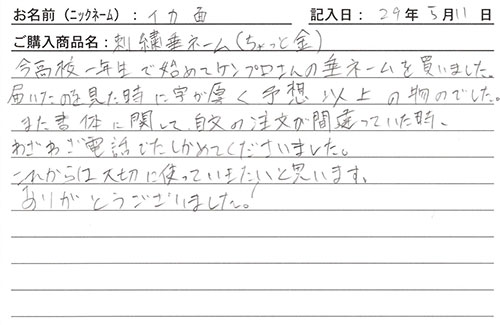 お名前（ニックネーム）：イカ面 記入日：29年5月11日
ご購入商品名：刺繍垂ネーム（ちゃっと金）
今高校一年生で始めてケンプロさんの垂ネームを買いました。
届いたのを見た時に字が厚く予想以上の物のでした。
また書体に関して、自分の注文が間違っていた時、
わざわざ電話でたしかめてくださいました。
これからは大切に使っていきたいと思います。
ありがとうございました！